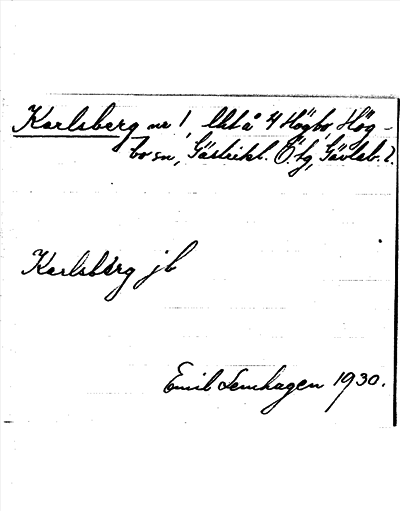 Karlsberg nr 1, lht å 4 Högbo, Hög-
bo sn, Gästrikl. Ö. tg, Gävleb. l.
Karlsberg jb
Emil Lenhagen 1930.